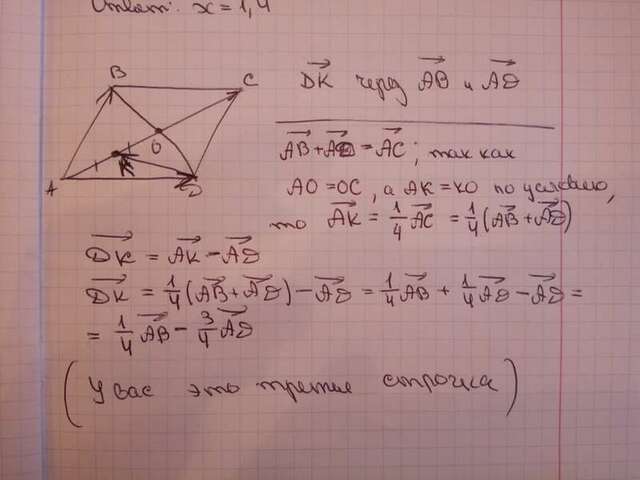 Ответ: x = 1,4
B
C
O
K
A
D
DK через AB и AD
AB + AD = AC; так как
AO = OC, а AK = KO по условию,
то AK = 1/4 AC = 1/4 (AB + AD)
DK = AK − AD
DK = 1/4 (AB + AD) − AD = 1/4 AB + 1/4 AD − AD =
= 1/4 AB − 3/4 AD
(У вас это третья строчка)